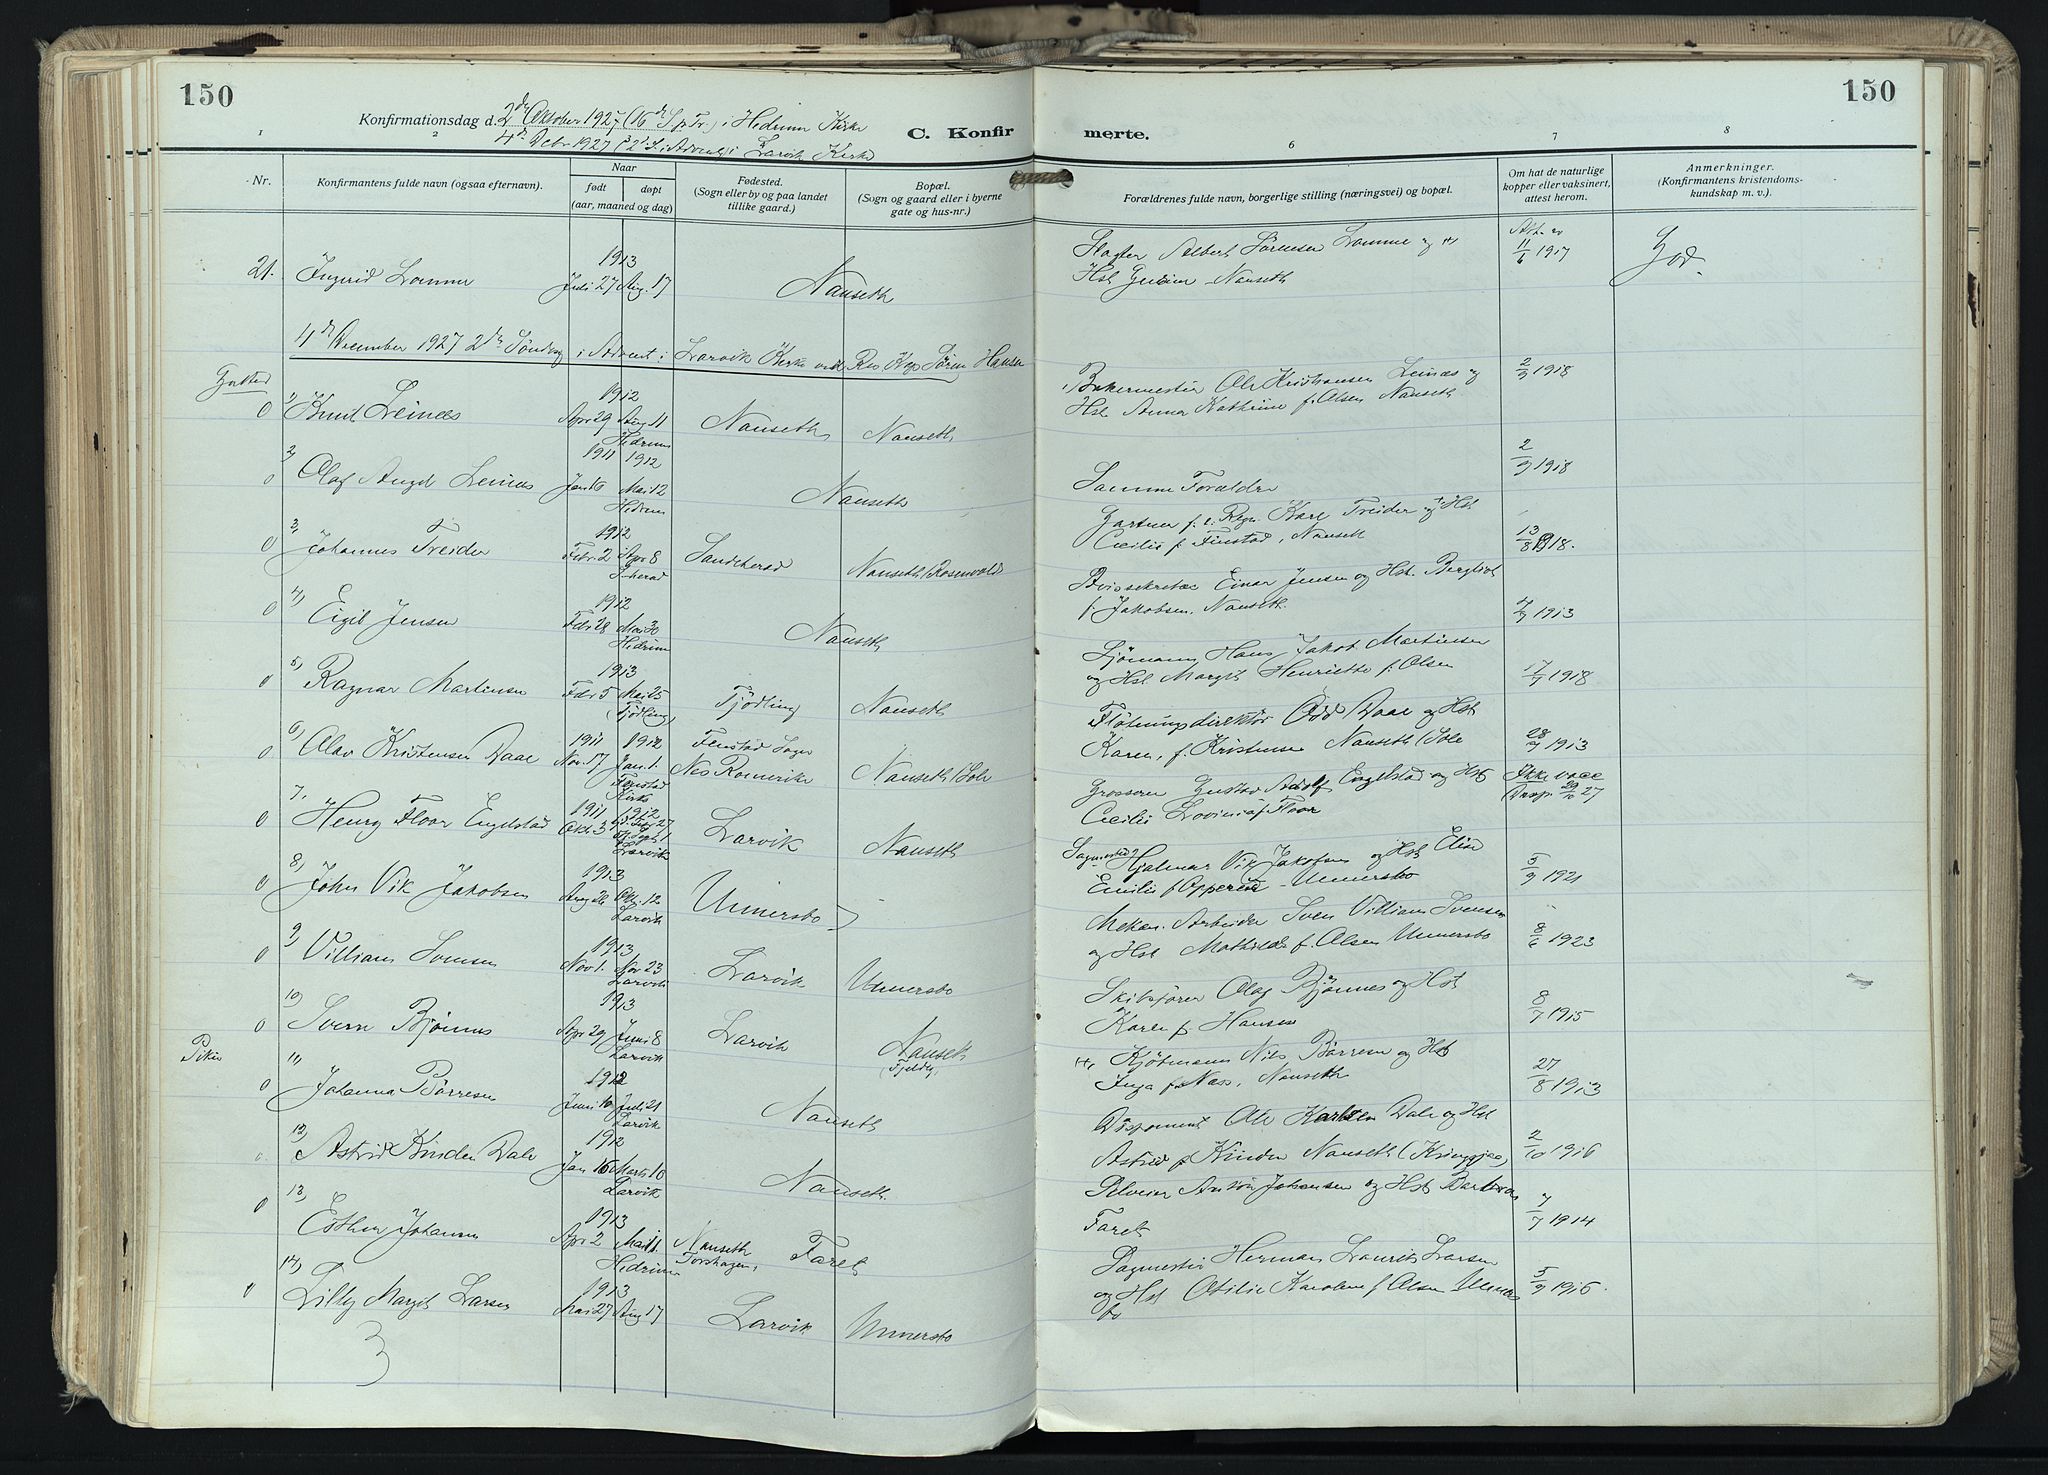 150
150
Konfirmationsdag d. 2den Oktober 1927 (16de S. p. Tr.) i Hedrum Kirke
4de Decbr 1927 (2den S. i Advent) i Larvik Kirke
C. Konfir merte.
1 2 6 7 8
Nr.
Konfirmantens fulde navn (ogsaa efternavn).
Naar
født døpt
(aar, maaned og dag)
Fødested.
(Sogn eller by og paa landet
tillike gaard.)
Bopæl.
(Sogn og gaard eller i byerne
gate og hus-nr.)
Forældrenes fulde navn, borgerlige stilling (næringsvei) og bopæl.
Om hat de naturlige
kopper eller vaksinert,
attest herom.
Anmerkninger.
(Konfirmantens kristendoms-
kundskap m. v.)
1913
21. Ingrid Lamme Juli 27 Aug. 17 Nanseth
Slagter Albert Sørensen Lamme og
Hst Nanseth
11/6 1917
God.
4de December 1927 2den Søndag i Advent i Larvik Kirke ved Res. Kap. Søren Hansen
Gutter
1912
0 1) Knut Leinæs Apr 29 Aug 11 Nanseth Nanseth
Hedrum
Bakermester Ole Kristiansen Leinæs og
Hst Anna Kathrine f. Olsen Nanseth
2/9 1918
1911 1912
0 2) Olaf Leinæs Jan 16 Mai 12 Nanseth
Hedrum
Samme Forældre
2/9 1918
1912
0 3) Johannes Treider Febr 2 Apr 8 Sandeherad Nanseth (Rosenvold
S.herad
Gartner Karl Treider og Hst
Cecilie f. Finstad, Nanseth
13/8 1918.
1912
0 4) Eigil Jensen Febr 28 Mai 30 Nanseth
Hedrum
Einar Jensen og Hst. Bergliot
f. Jakobsen, Nanseth
4/9 1913
1913
0 5) Ragnar Martinsen Febr 5 Mai 25 Tjødling Nanseth
(Tjødling)
Sjømann Hans Jakob Martinsen
og Hst Margit Henriette f. Olsen
17/9 1918
1911 1912
0 6) Olav Kristensen Daae Nov. 17 Jan. 1. Fenstad Sogn
Nes Romerike Nanseth/Sole
Fenstad
Kirke
Fløtningsdirektør Odd Daae og Hst
Karen, f. Kristensen Nanseth (Sole
28/9 1913
1911 1912
0 7. Henry Floor Engelstad Okt. 3 Larvik Nanseth
Larvik
Grosserer Gustav Adolf Engelstad og Hst
Cecilie Lovinia f Floor
Ikke vacc
Disp. 29/10 27
1913
0 8) John Vik Jakobsen Aug 26 Okt. 12 Unnersbo
Larvik
Sagmester Hjalmar Vik Jakobsen og Hst Elise
Emilie f. Opperud - Unnersbo
5/9 1921
1913
0 9) Villiam Svensen Nov 1. Nov 23 Larvik Unnersbo
Larvik
Mekan. Arbeider Sven Villiam Svensen
og Hst Mathilde f. Olsen Unnersbo
8/6 1923
1913
0 10) Svern Bjønnes Apr 29 Juni 8 Larvik Nanseth
Larvik (Fjeldly)
Skibsfører Olaf Bjønnes og Hst
Karen f. Hansen
8/7 1915
Piker
1912
0 11) Johanna Børresen Juni 10 Juli 21 Nanseth
Larvik
Kjøbmann Nils Børresen og Hst
Inga f. Næss, Nanseth
27/8 1913
1912
0. 12) Astrid Kinden Dale Jan 16 Marts 10 Nanseth
Larvik
Disponent Ole Karlsen Dale og Hst
Astrid f. Kinden Nanseth (Kringsjaa)
2/10 1916
1913
0 13) Esther Johansen Apr 2 Mai 11. Nanseth Faret
Hedrum Torshagen,
Anton Johansen og Hst Barbra
Faret
7/7 1914
1913
0 14) Lilly Margit Larsen Mai 27 Aug 17 Larvik Unnersbo
Sagmester Herman Laurits Larsen
og Hst Otilie Karoline f. Olsen Unners
bo
5/9 1916.
3